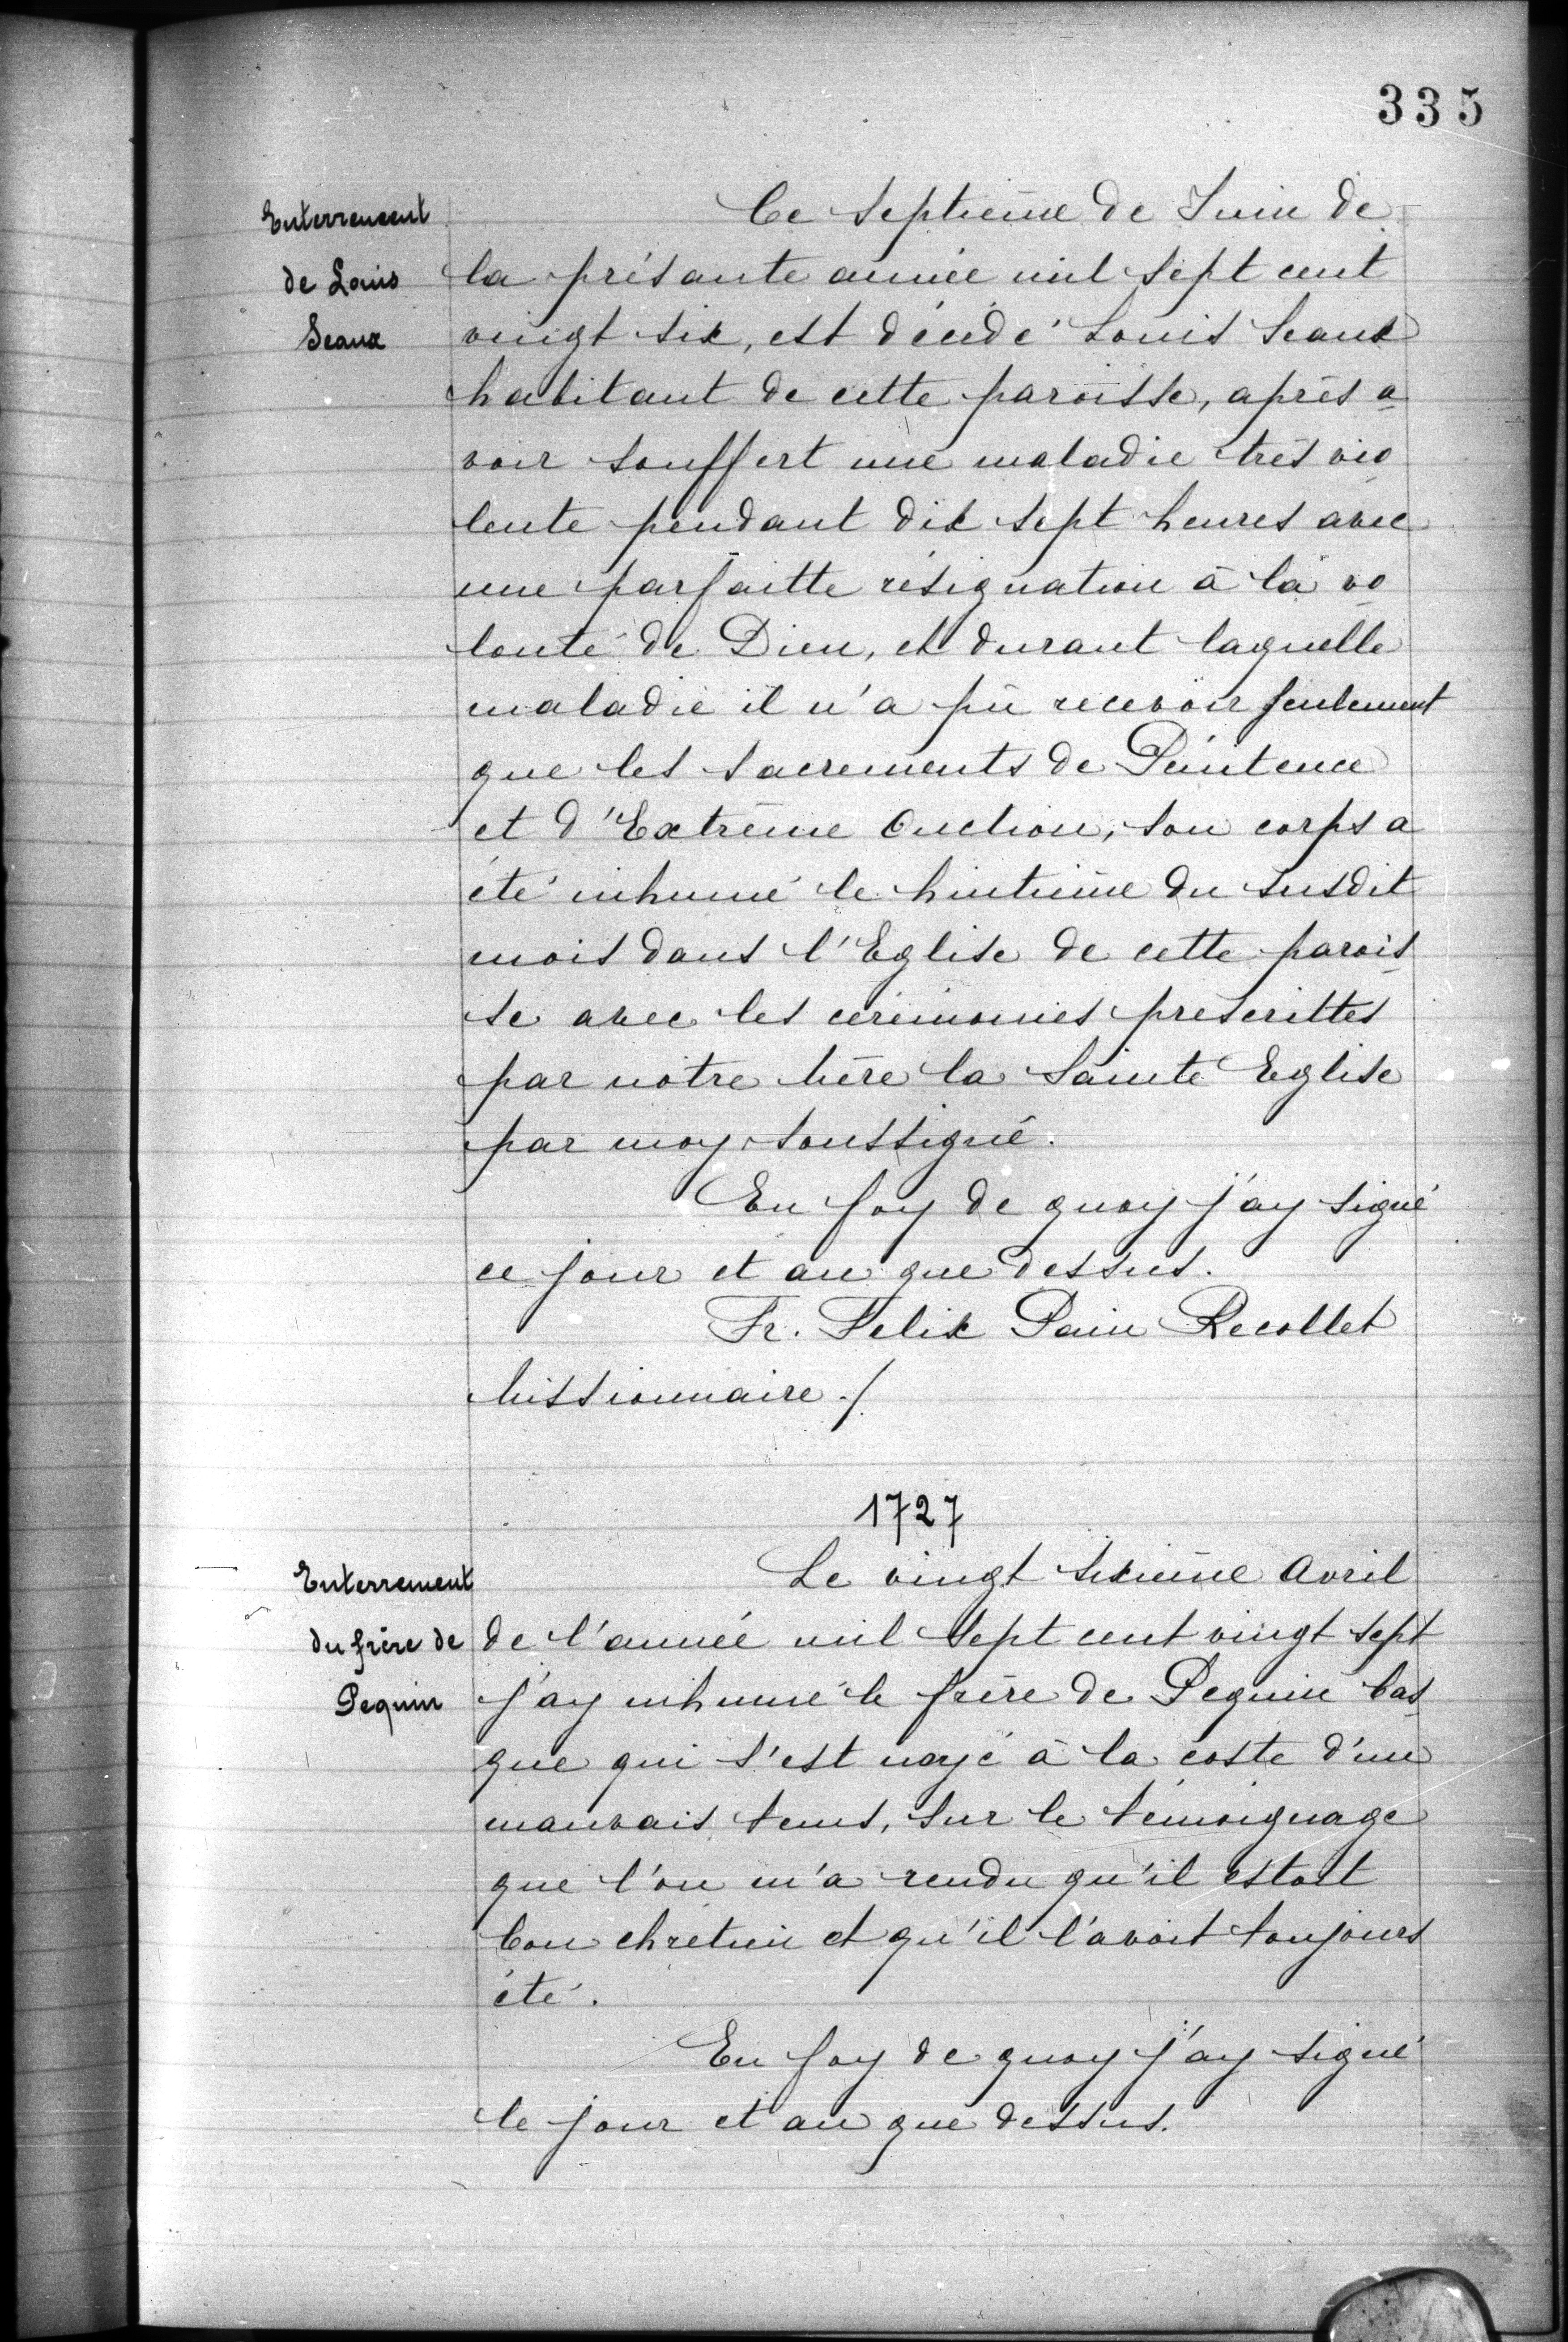 335
Enterrement
de Louis
Seaux
Ce septième de Juin de
la présante année mil sept cent
vingt six, est décédé Louis Seaux
habitant de cette paroisse, après a
voir souffert une maladie très vio
lente pendant dix sept heures avec
une parfaitte résignation à la vo
lonté de Dieu, et durant laquelle
maladie il n'a pû recevoir seulement
que les sacrements de Pénitence
et d'Extrême Onction; son corps a
été inhumé le huitième du susdit
mois dans l'Eglise de cette parois
se avec les cérémonies prescrittes
par nôtre Mère la Sainte Eglise
par moy soussigné.
En foy de quoy j'ay signé
ce jour et an que dessus.
Fr. Felix Pain Recollet
Missionnaire ./
1727
Enterrement
du frère de
Pequin
Le vingt sixième Avril
de l'année mil sept cent vingt sept
j'ay inhumé le frère de Pequin bas
que qui s'est noyé à la coste d'un
mauvais tems, sur le témoignage
que l'on m'a rendu qu'il estoit
bon chrétien et qu'il l'avoit toujours
été.
En foy de quoy j'ay signé
le jour et an que dessus.